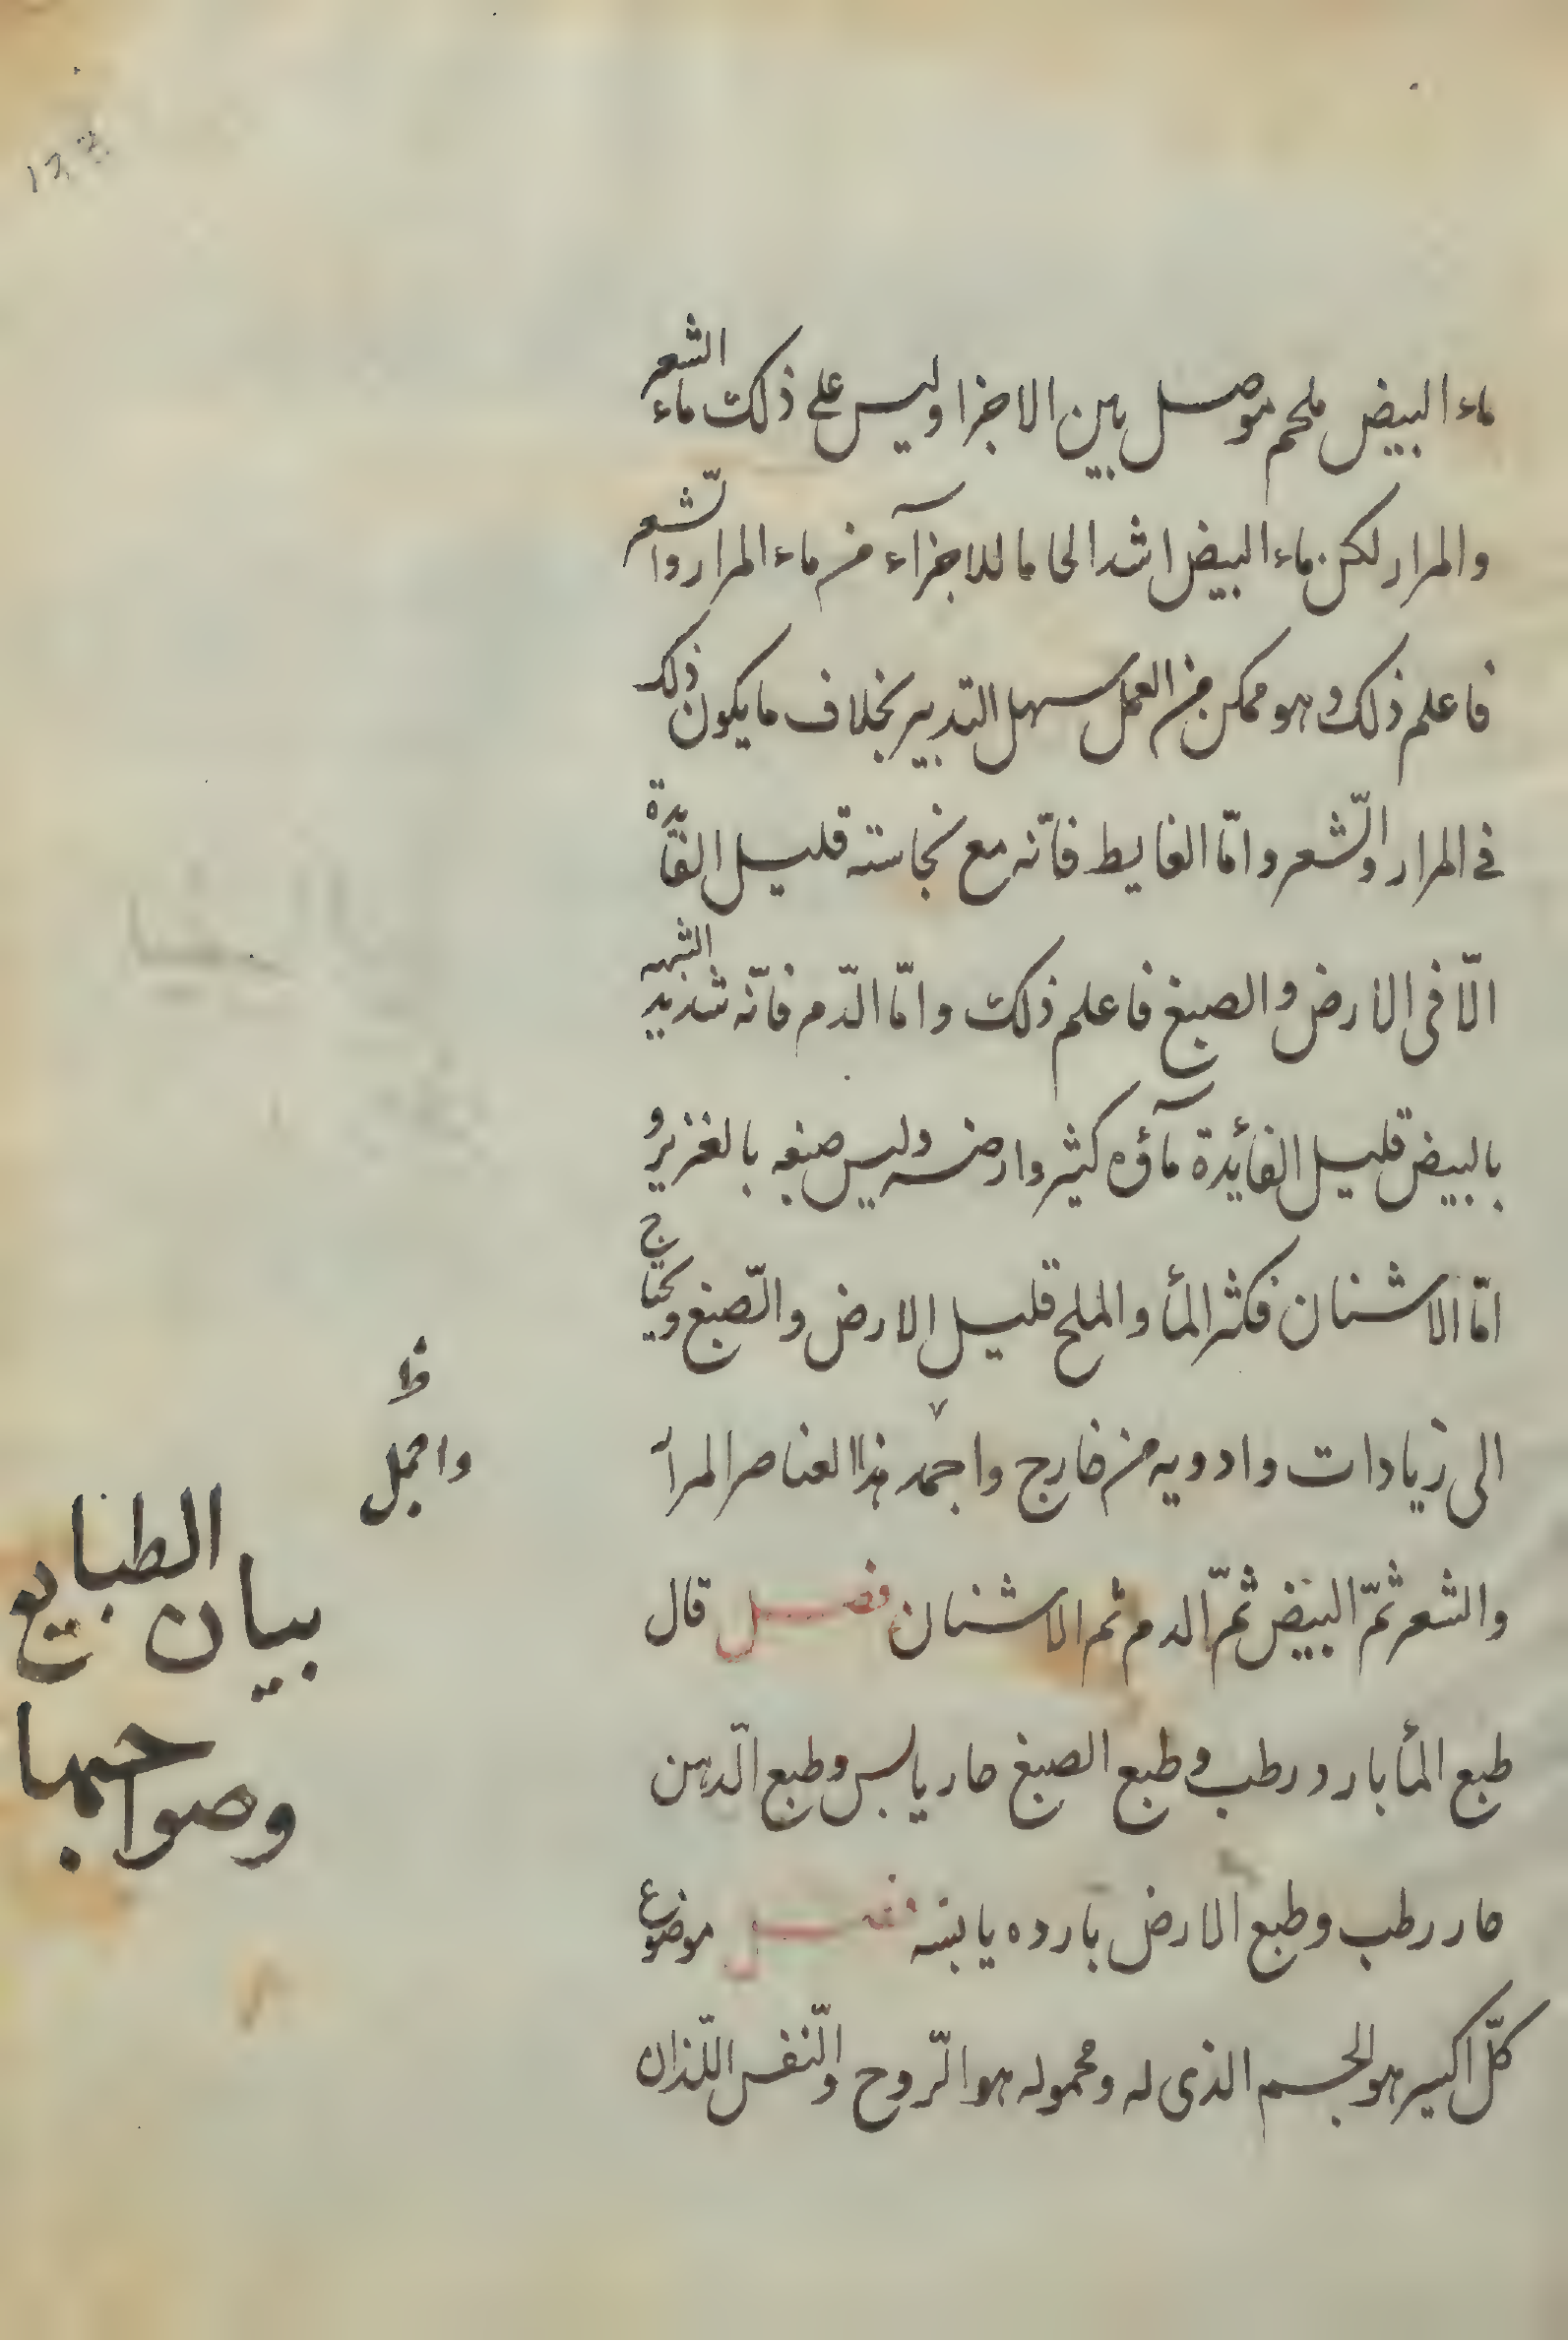 ماء البيض ملحم موصل بين الاجزا وليس على ذلك ماء الشعر
والمرار لكن ماء البيض اشد الحاما للاجزآء من ماء المرار والشّعر
فاعلم ذلك وهو ممكن من العمل سهل التدبير بخلاف ما يكون ذلك
فى المرار والشّعر وامّا الغايط فانّه مع نجاسته قليل الفآيدة
الّا فى الارض والصبغ فاعلم ذلك وامّا الدّم فانّه شديد الشبه
بالبيض قليل الفائدة مآؤه كثير وارضه وليس صبغه بالغزير و
امّا الاشنان فكثير المأ والملح قليل الارض والصّبغ ويحتاج
الى زيادات وادويه من خارج واجمد هذا العناصر المرآ
والشعر ثمّ البيض ثمّ الدم ثم الاشنان فصل قال
طبع المأ بارد رطب وطبع الصبغ حار يابس وطبع الدّهن
حار رطب وطبع الارض بارده يابسه فصل موضوع
كلّ اكسير هو الجسم الذى له ومحموله هو الرّوح والنّفس اللّذان
ظ
واجمل
بيان الطبايع
وصواحبها